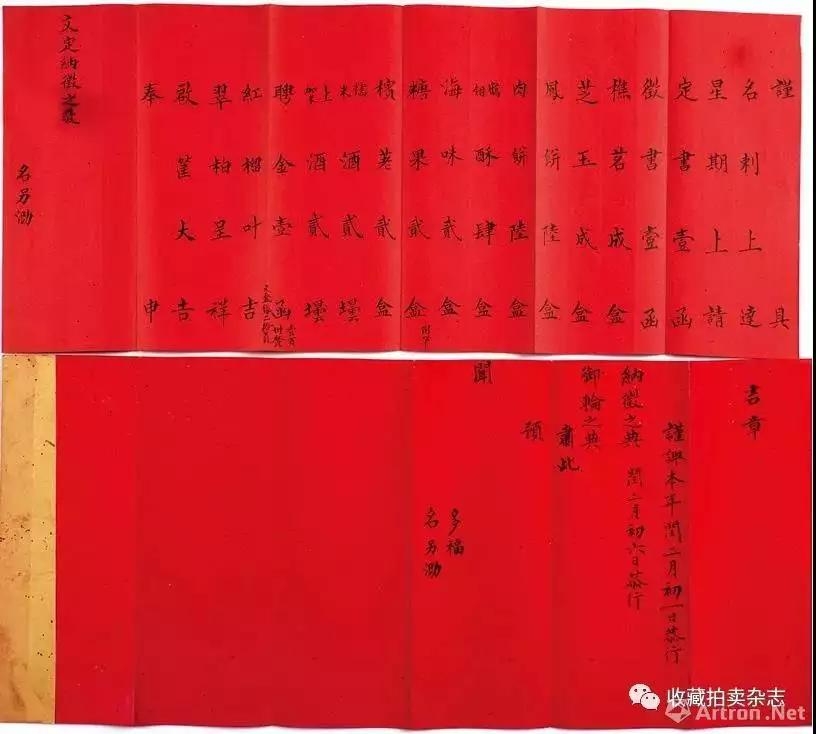 謹具
名刺上達
星期上請
定書壹函
徵書壹函
樵茗成盒
芝玉成盒
鳳餅陸盒
肉餅陸盒
酥肆盒
海味貳盒
糖果貳盒
檳荖貳盒
糯米酒貳壜
上酒貳壜
聘金壹函
紅榴叶吉
翠柏呈祥
啟篚大吉
奉申
文定納徵之敬
名另泐
吉章
謹諏本年閏二月初一日恭行
納徵之典 閏二月初六日恭行
御輪之典
肅此
預
聞
多福
名另泐
收藏拍卖杂志
Artron.Net